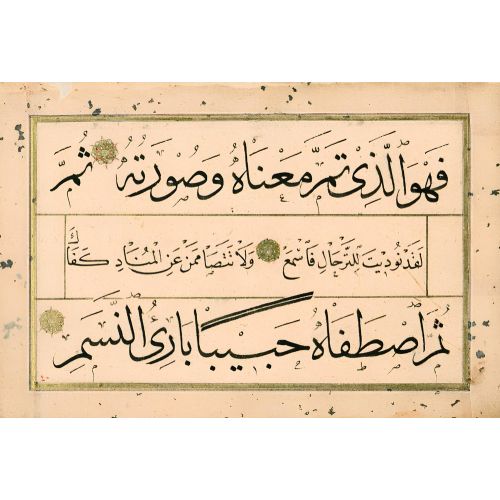 فَهْوَ الَّذِى تَمَّ مَعْنَاهُ وَصُورَتُهُ ثُمَّ
لَقَدْ نُودِيتَ لِلتَّرْحَالِ فَاسْمَعْ وَلَا تَتَصَامَمَنْ عَنِ الْمُنَادِ كَفَاكَ
ثُمَّ اصْطَفَاهُ حَبِيبًا بَارِئُ النَّسَمِ